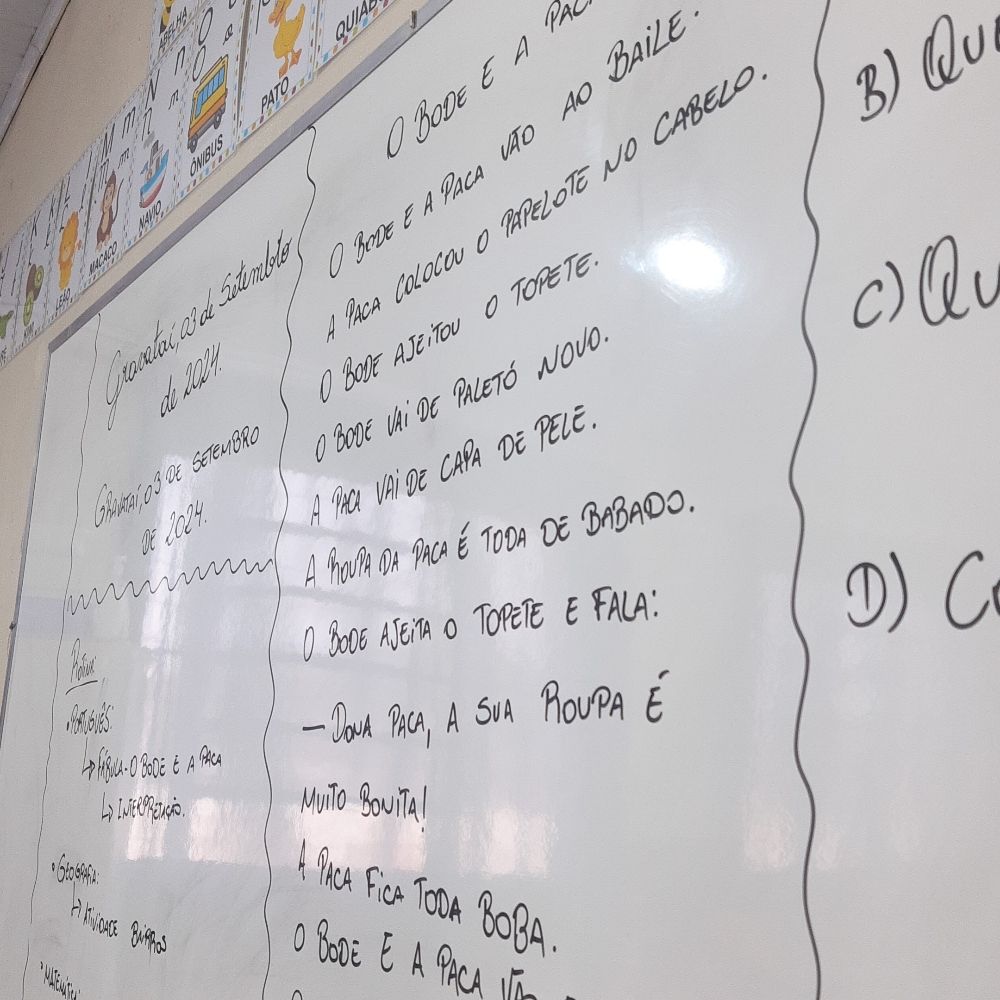 ABELHA
PATO
QUIAB
ÔNIBUS
NAVIO
MACACO
LEÃO
Gravataí, 03 de Setembro
de 2024.
GRAVATAÍ, 03 DE SETEMBRO
DE 2024.
ROTINA:
• PORTUGUÊS:
↳ FÁBULA - O BODE E A PACA
↳ INTERPRETAÇÃO.
• GEOGRAFIA:
↳ ATIVIDADE BAIRROS
• MATEMÁTICA:
O BODE E A PAC
O BODE E A PACA VÃO AO BAILE.
A PACA COLOCOU O PAPELOTE NO CABELO.
O BODE AJEITOU O TOPETE.
O BODE VAI DE PALETÓ NOVO.
A PACA VAI DE CAPA DE PELE.
A ROUPA DA PACA É TODA DE BABADO.
O BODE AJEITA O TOPETE E FALA:
— DONA PACA, A SUA ROUPA É
MUITO BONITA!
A PACA FICA TODA BOBA.
O BODE E A PACA VÃO
B) QUE
C) QU
D) CO